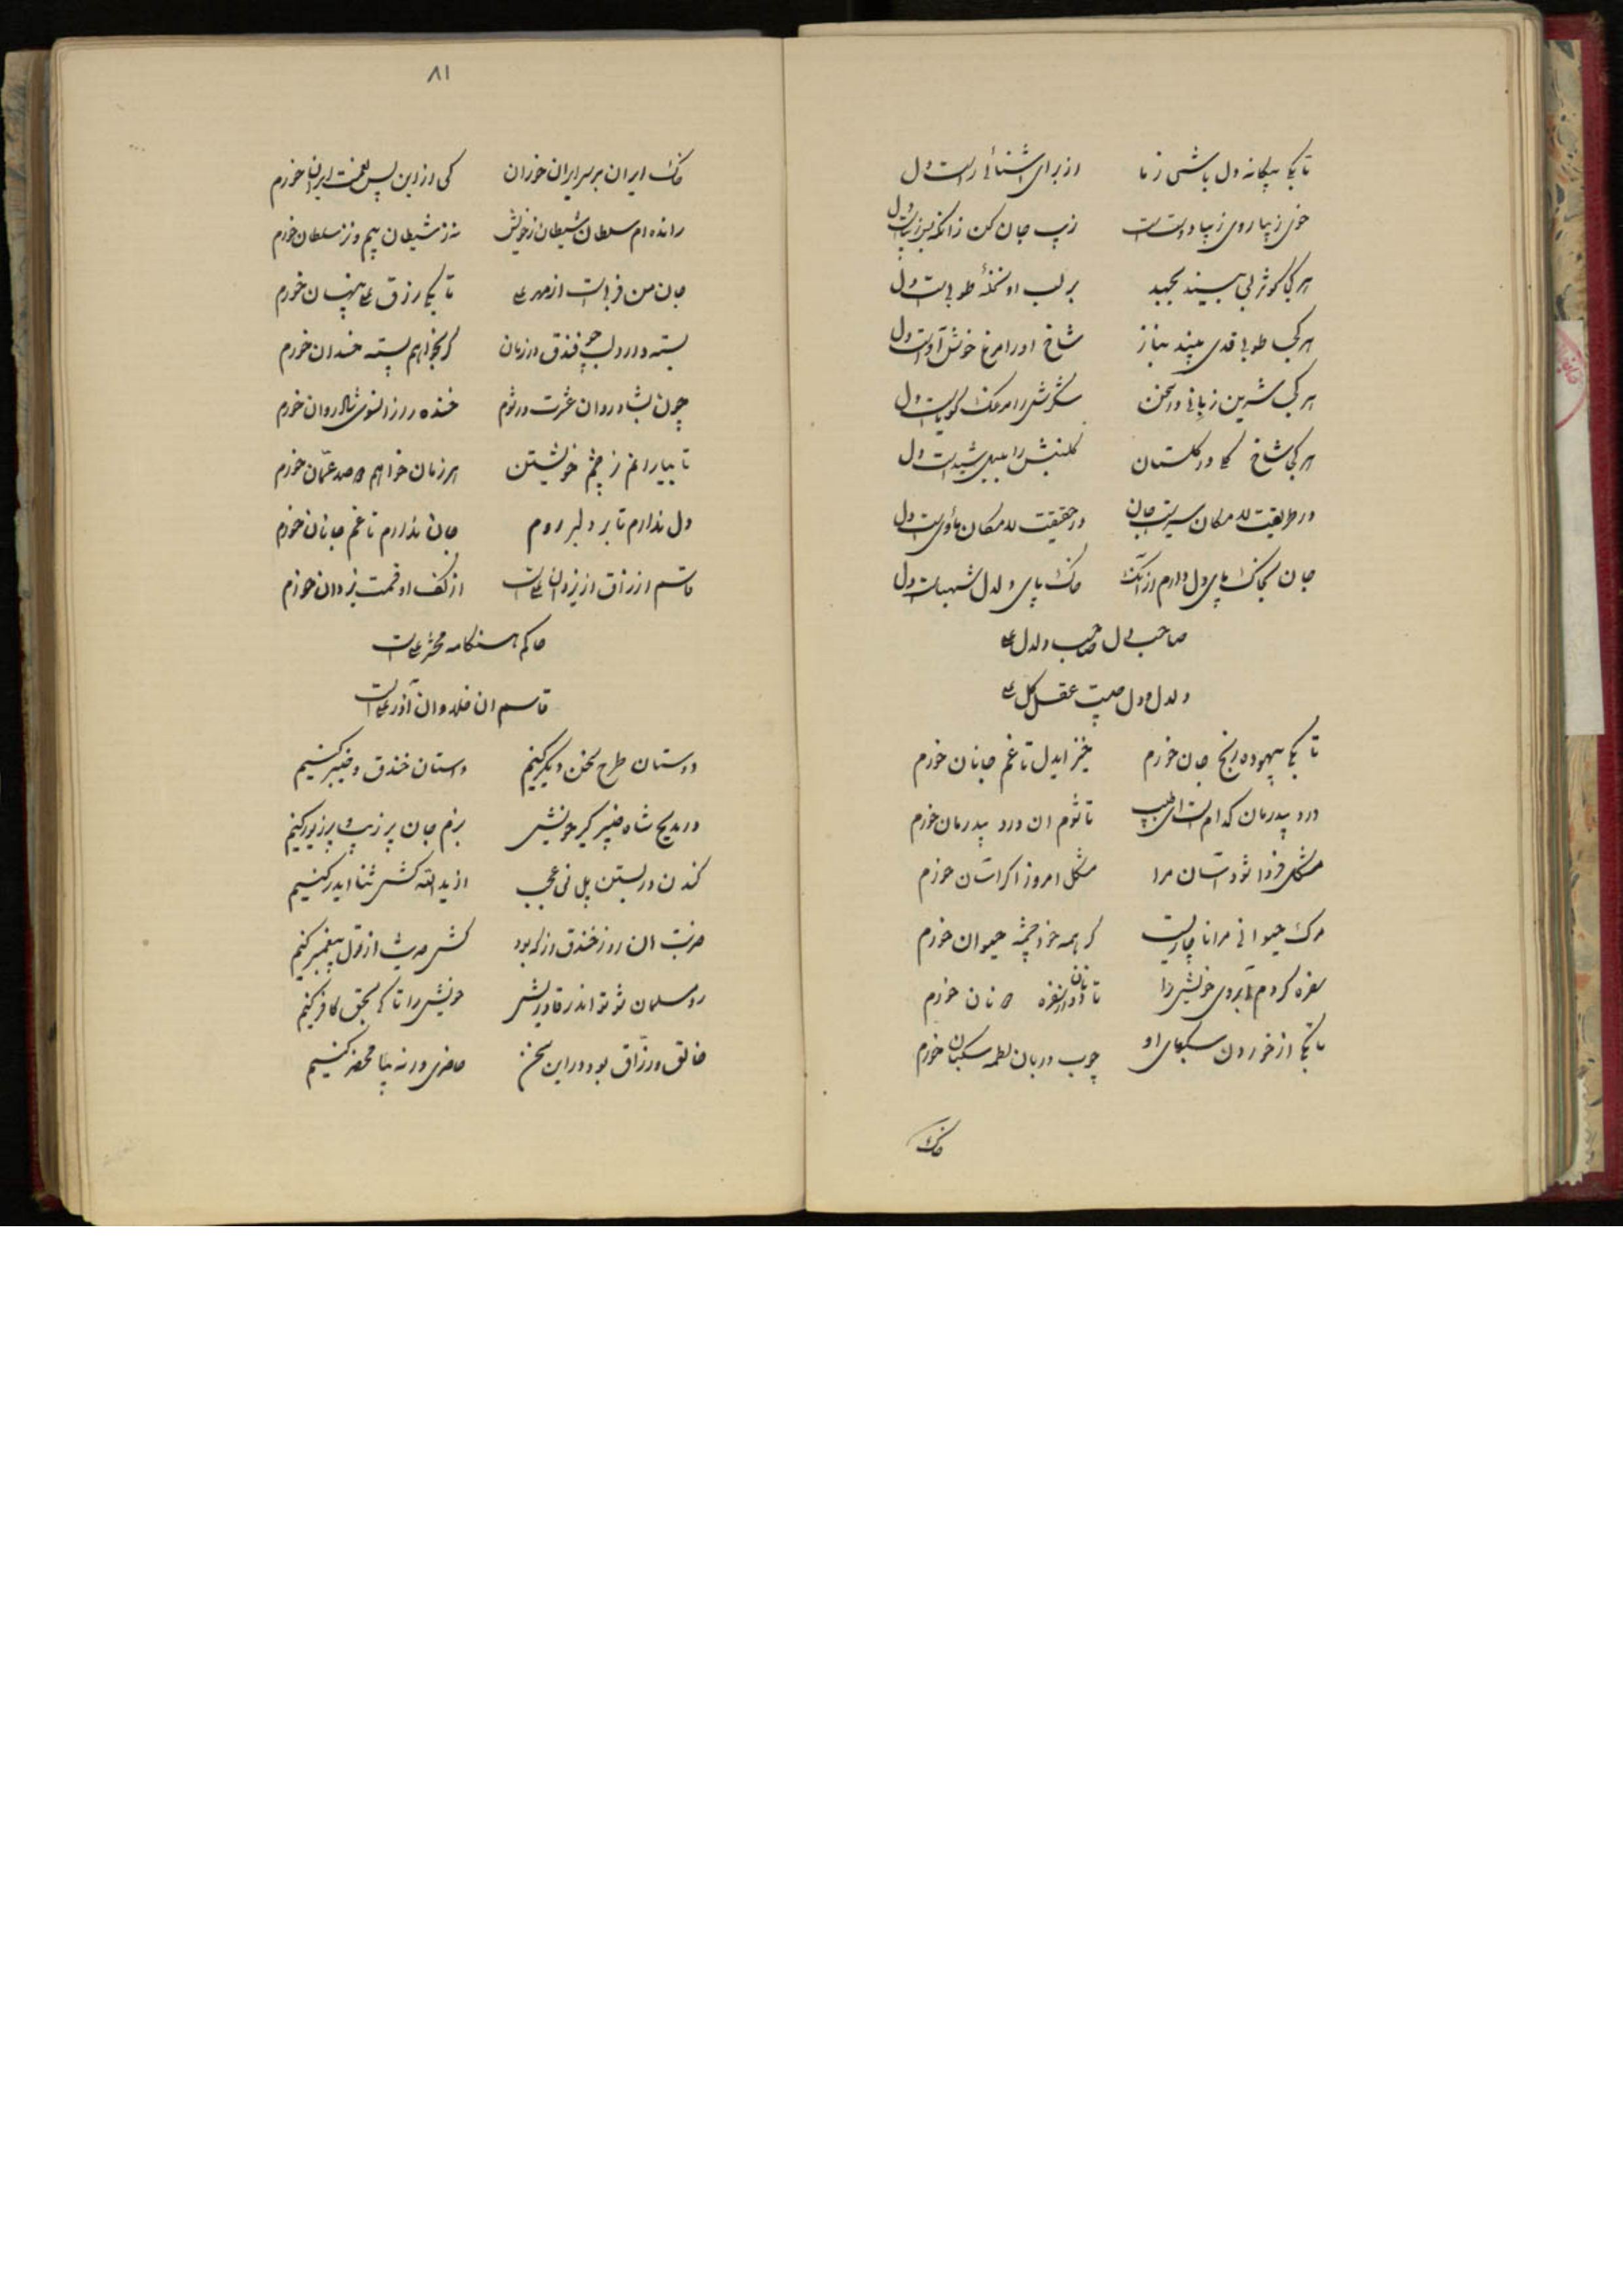 تا بکی بیکانه دل باشی ز ما از برای اشنائی راست دل
خوی زیبا روی زیبا دوست است زیب جان کن زانکه پس زیباست دل
هر کجا کوثر لبی بیند بجهد بر لب او نخله طوبی است دل
هر کجا طوبی قدی بیند بناز شاخ او را مرغ خوش آواست دل
هر کجا شیرین زبانی در سخن شکرش را مرغک کویاست دل
هر کجا شاخ کلی در کلستان کلبنش را بلبل شیداست دل
در طریقت لامکان سیریست جان در حقیقت لامکان مأویست دل
جان بخاک پای دل دارم از آنک خاک پای دلدل شهباست دل
صاحب دل صاحب دلدل علی
دلدل و دل چیست عقل کل علی
تا بکی بیهوده رنج جان خورم خیز ایدل تا غم جانان خورم
درد بیدرمان کدام است ای طبیب تا شوم ان درد بیدرمان خورم
مشکل فردا شود اسان مرا مشکل امروز اکر اسان خورم
مرک حیوانی مرا ناچاریست کر همه خود چشمه حیوان خورم
سفره کردم آبروی خویش را تا ز دونان سفره نان خورم
تا بکی از خوردن سکبای او چوب دربان لطمه سکبان خورم
خاک
۸۱
خاک ایران بر سر ایران خوران کی از این پس نعمت ایران خورم
رانده ام سلطان شیطان ز خویش نه ز شیطان بیم و نز سلطان خورم
جان من فربه است از مهر علی تا بکی رزق علی پنهان خورم
بسته دارد لب چو فندق در زمان کر بخواهم پسته خندان خورم
چون بشادروان عشرت در شوم خنده روز انسوی شادروان خورم
تا بیارانم ز چشم خویشتن هر زمان خواهم صد عمّان خورم
دل ندارم تا بر دلبر روم جان ندارم تا غم جانان خورم
قاسم ارزاق از یزدان علی است از کف او قسمت یزدان خورم
حاکم هنکامه محشر علی است
قاسم ان خلد و ان آذر علی است
دوستان طرح سخن دیکر کنیم داستان خندق و خیبر کنیم
در مدیح شاه خیبر کیر خویش بزم جان پر زیب و پر زیور کنیم
کندن در بستن پل نی عجب از ید الله کش ثنا ایدر کنیم
ضربت ان روز خندق از که بود کش حدیث از قول پیغمبر کنیم
رو مسلمان شو تو اندر قادریش خویش را تا کی بحق کافر کنیم
خالق و رزّاق بود در این سخن حاضری ور نه بیا محضر کنیم